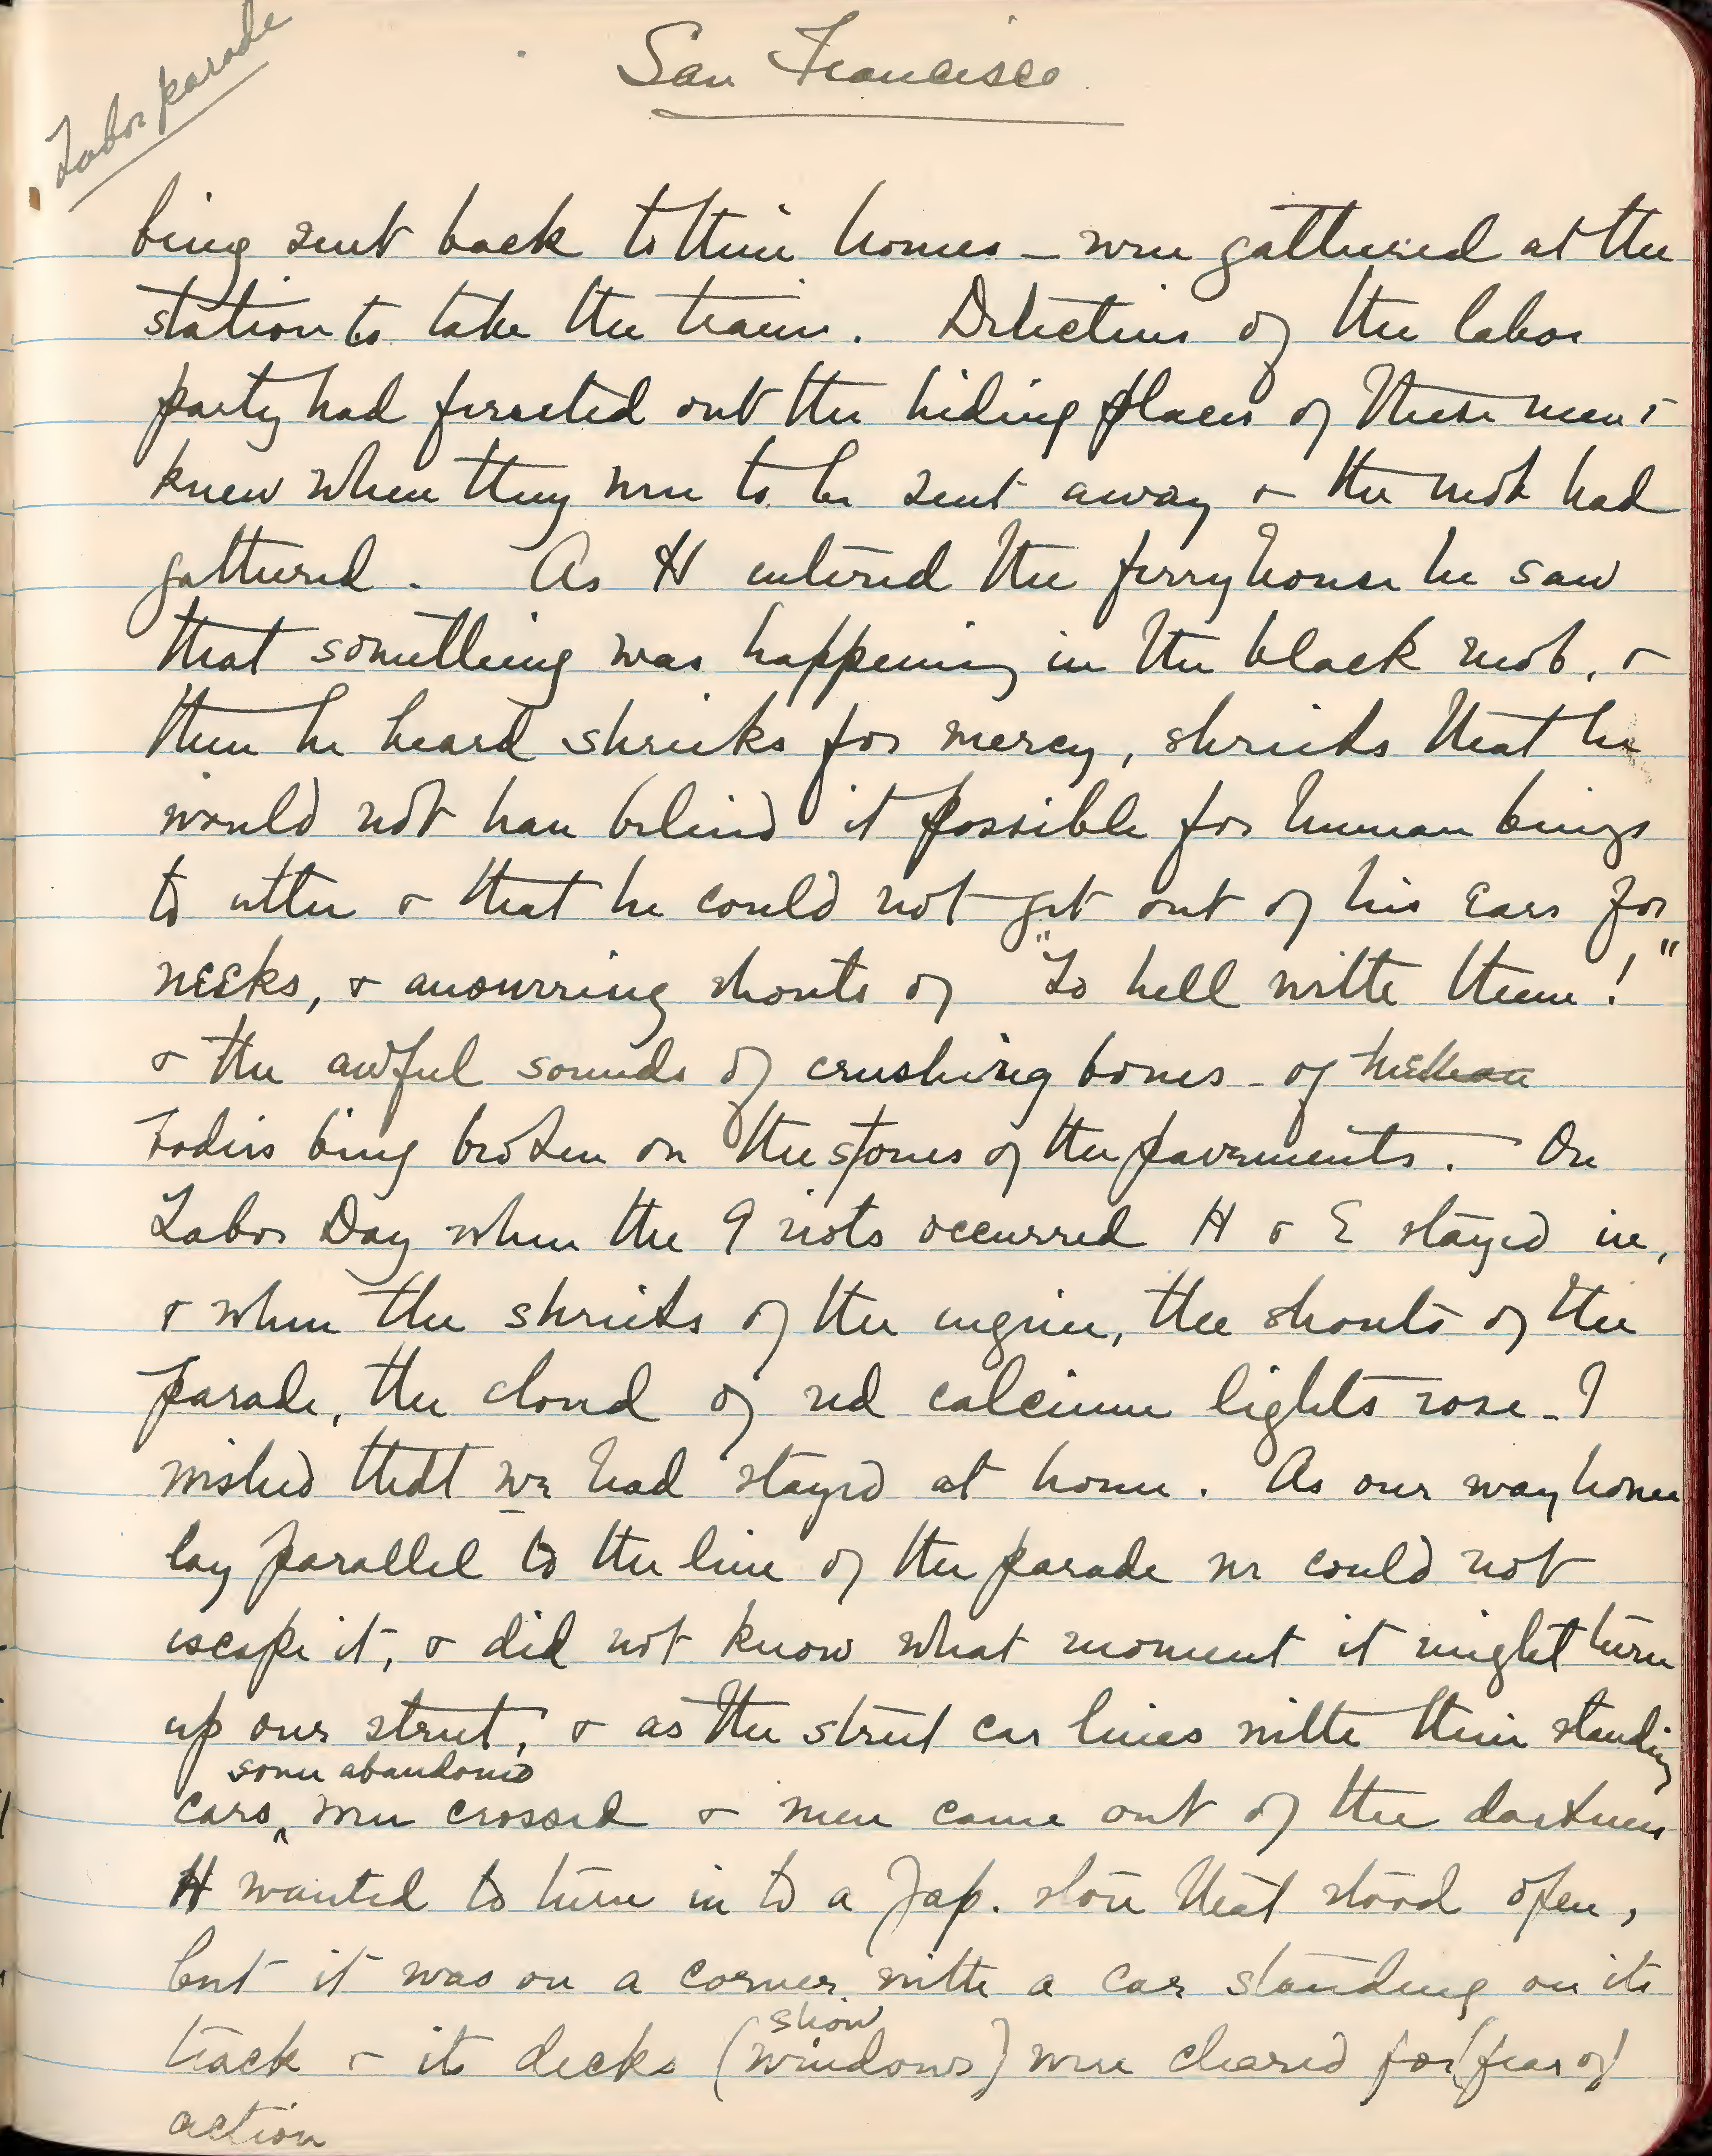 Labor parade
San Francisco
being sent back to their homes – were gathered at the
station to take the train. Detectives of the labor
party had ferreted out the hiding places of these men &
knew when they were to be sent away & the mob had
gathered. As H entered the ferry house he saw
that something was happening in the black mob, &
then he heard shrieks for mercy, shrieks that he
would not have believed it possible for human beings
to utter & that he could not get out of his ears for
weeks, & answering shouts of "To hell with them!"
& the awful sounds of crushing bones – of
bodies being broken on the stones of the pavements. On
Labor Day when the 9 riots occurred H & E stayed in,
& when the shrieks of the engine, the shouts of the
parade, the cloud of red calcium lights rose – I
wished that we had stayed at home. As our way home
lay parallel to the line of the parade we could not
escape it, & did not know what moment it might turn
up our street, & as the street car lines with their standing
some abandoned
cars, were crossed & men came out of the darkness
H wanted to turn in to a Jap. store that stood open,
but it was on a corner with a car standing on its
show
track & its decks (windows) were cleared for (fear of)
action